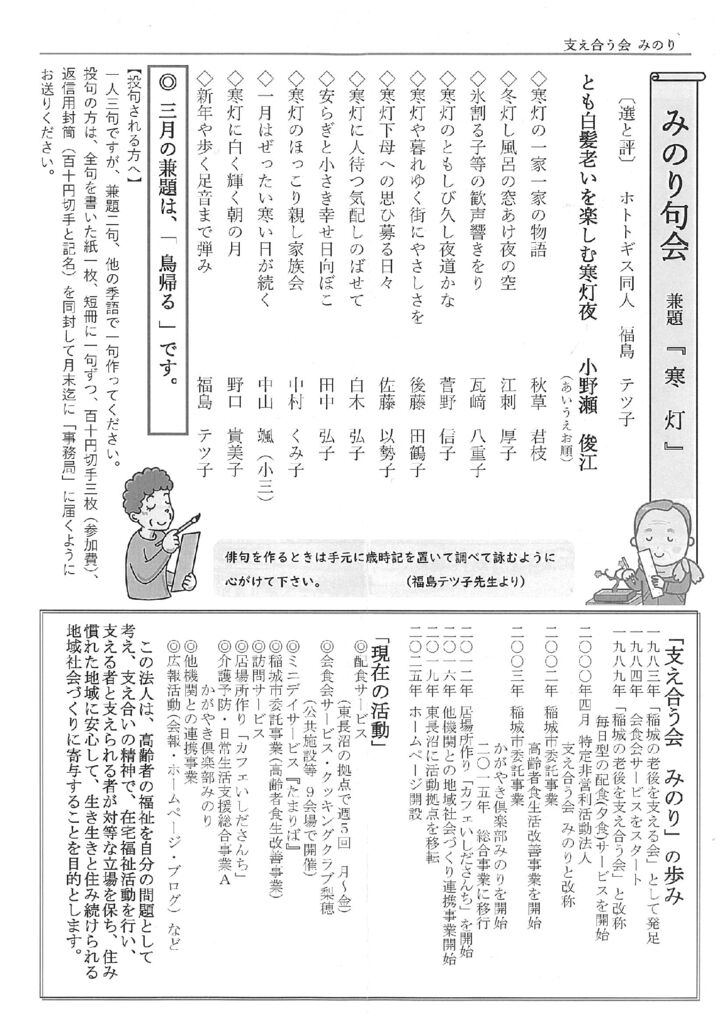 支え合う会 みのり
みのり句会 兼題『寒 灯』
〔選と評〕 ホトトギス同人 福島 テツ子
とも白髪老いを楽しむ寒灯夜 小野瀬 俊江
(あいうえお順)
◇寒灯の一家一家の物語 秋草 君枝
◇冬灯し風呂の窓あけ夜の空 江刺 厚子
◇氷割る子等の歓声響きをり 瓦﨑 八重子
◇寒灯のともしび久し夜道かな 菅野 信子
◇寒灯や暮れゆく街にやさしさを 後藤 田鶴子
◇寒灯下母への思ひ募る日々 佐藤 以勢子
◇寒灯に人待つ気配しのばせて 白木 弘子
◇安らぎと小さき幸せ日向ぼこ 田中 弘子
◇寒灯のほっこり親し家族会 中村 くみ子
◇一月はぜったい寒い日が続く 中山 颯(小三)
◇寒灯に白く輝く朝の月 野口 貴美子
◇新年や歩く足音まで弾み 福島 テツ子
◎ 三月の兼題は、「 鳥帰る 」です。
【投句される方へ】
一人三句ですが、兼題二句、他の季語で一句作ってください。
投句の方は、全句を書いた紙一枚、短冊に一句ずつ、百十円切手三枚(参加費)、
返信用封筒(百十円切手と記名)を同封して月末迄に「事務局」に届くように
お送りください。
俳句を作るときは手元に歳時記を置いて調べて詠むように
心がけて下さい。 (福島テツ子先生より)
「支え合う会 みのり」の歩み
一九八三年「稲城の老後を支える会」として発足
一九八四年 会食会サービスをスタート
一九八九年「稲城の老後を支え合う会」と改称
毎日型の配食(夕食)サービスを開始
二〇〇〇年四月 特定非営利活動法人
支え合う会 みのりと改称
二〇〇二年 稲城市委託事業
高齢者食生活改善事業を開始
二〇〇三年 稲城市委託事業
かがやき倶楽部みのりを開始
二〇一五年 総合事業に移行
二〇一二年 居場所作り「カフェいしださんち」を開始
二〇一六年 他機関との地域社会づくり連携事業開始
二〇一九年 東長沼に活動拠点を移転
二〇二五年 ホームページ開設
「現在の活動」
◎配食サービス
(東長沼の拠点で週5回 月~金)
◎会食会サービス・クッキングクラブ梨穂
(公共施設等 9会場で開催)
◎ミニデイサービス『たまりば』
◎稲城市委託事業(高齢者食生改善事業)
◎訪問サービス
◎居場所作り「カフェいしださんち」
◎介護予防・日常生活支援総合事業A
かがやき倶楽部みのり
◎他機関との連携事業
◎広報活動(会報・ホームページ・ブログ)など
この法人は、高齢者の福祉を自分の問題として
考え、支え合いの精神で、在宅福祉活動を行い、
支える者と支えられる者が対等な立場を保ち、住み
慣れた地域に安心して、生き生きと住み続けられる
地域社会づくりに寄与することを目的とします。